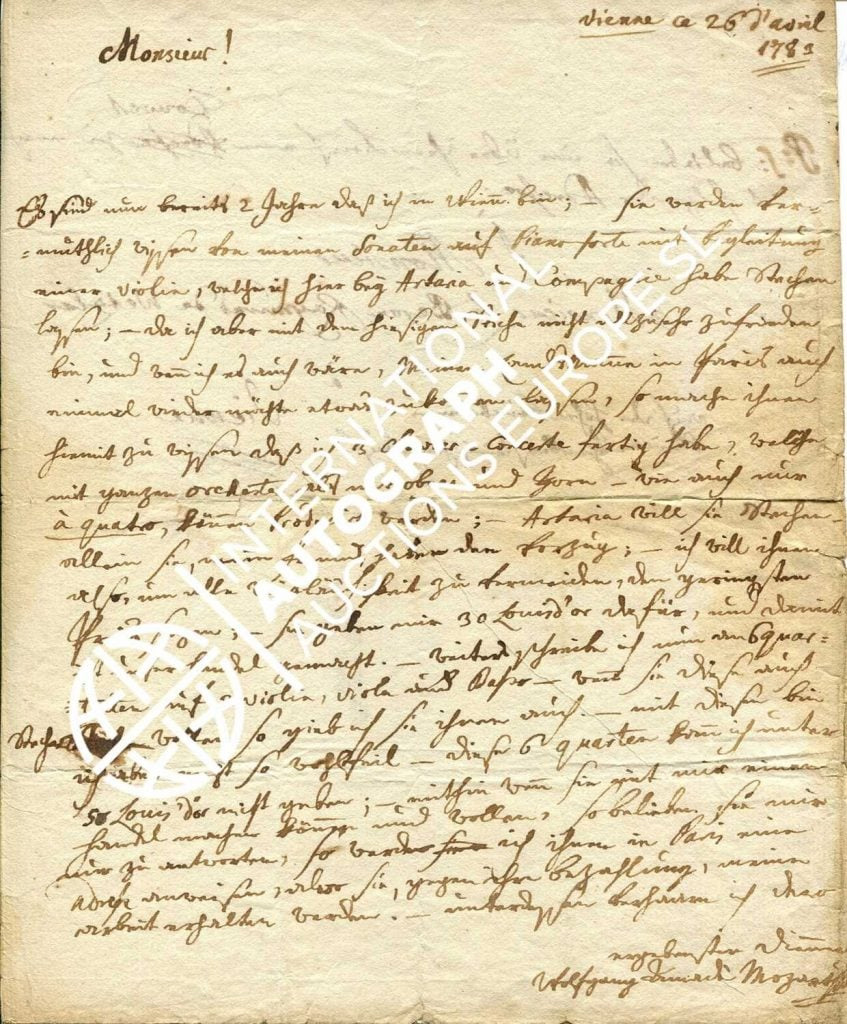 Vienne ce 26 d'avril
1783
Monsieur!
Es sind nun bereits 2 Jahre daß ich in Wienn bin; – sie werden ver=
=muthlich wissen von meinen Sonaten auf Piano forte mit begleitung
einer Violin, welche ich hier bey Artaria und Compagnie habe Stechen
lassen; – da ich aber mit dem hiesigen Stiche nicht allzusehr zufrieden
bin, und wenn ich es auch wäre, Meinen Landsmann in Paris auch
einmal wieder möchte etwas zukommen lassen, so mache ihnen
hiemit zu wissen daß ich 3 Clavier Concerte fertig habe, welche
mit ganzen orchester, mit oboen und Horn – wie auch nur
à quatro, können Producirt werden; – Artaria will sie Stechen.
allein sie, mein haben den Vorzug; – ich will ihnen
also, um alle Weitläufigkeit zu vermeiden, den geringsten
Preis sagen; – sie geben mir 30 Louis d'or dafür, und damit
ist unser handel gemacht. – weiters schreibe ich nun an 6 quar=
=tetten auf 2 violin, viola und Basso – wenn sie diese auch
Stechen wollen so gieb ich sie ihnen auch. – mit diesen bin
ich aber nicht so wohlfeil – diese 6 quartetten kann ich unter
50 Louis d'or nicht geben; – mithin wenn sie mit mir einen
handel machen können und wollen, so belieben sie mir
nur zu antworten, so werde ich ihnen in Paris eine
adresse anweisen, alwo sie, gegen ihre bezahlung, meine
arbeit erhalten werden. – unterdessen verharre ich dero
ergebenster Diener
Wolfgang Amadè Mozart
INTERNATIONAL
AUTOGRAPH
AUCTIONS EUROPE SL